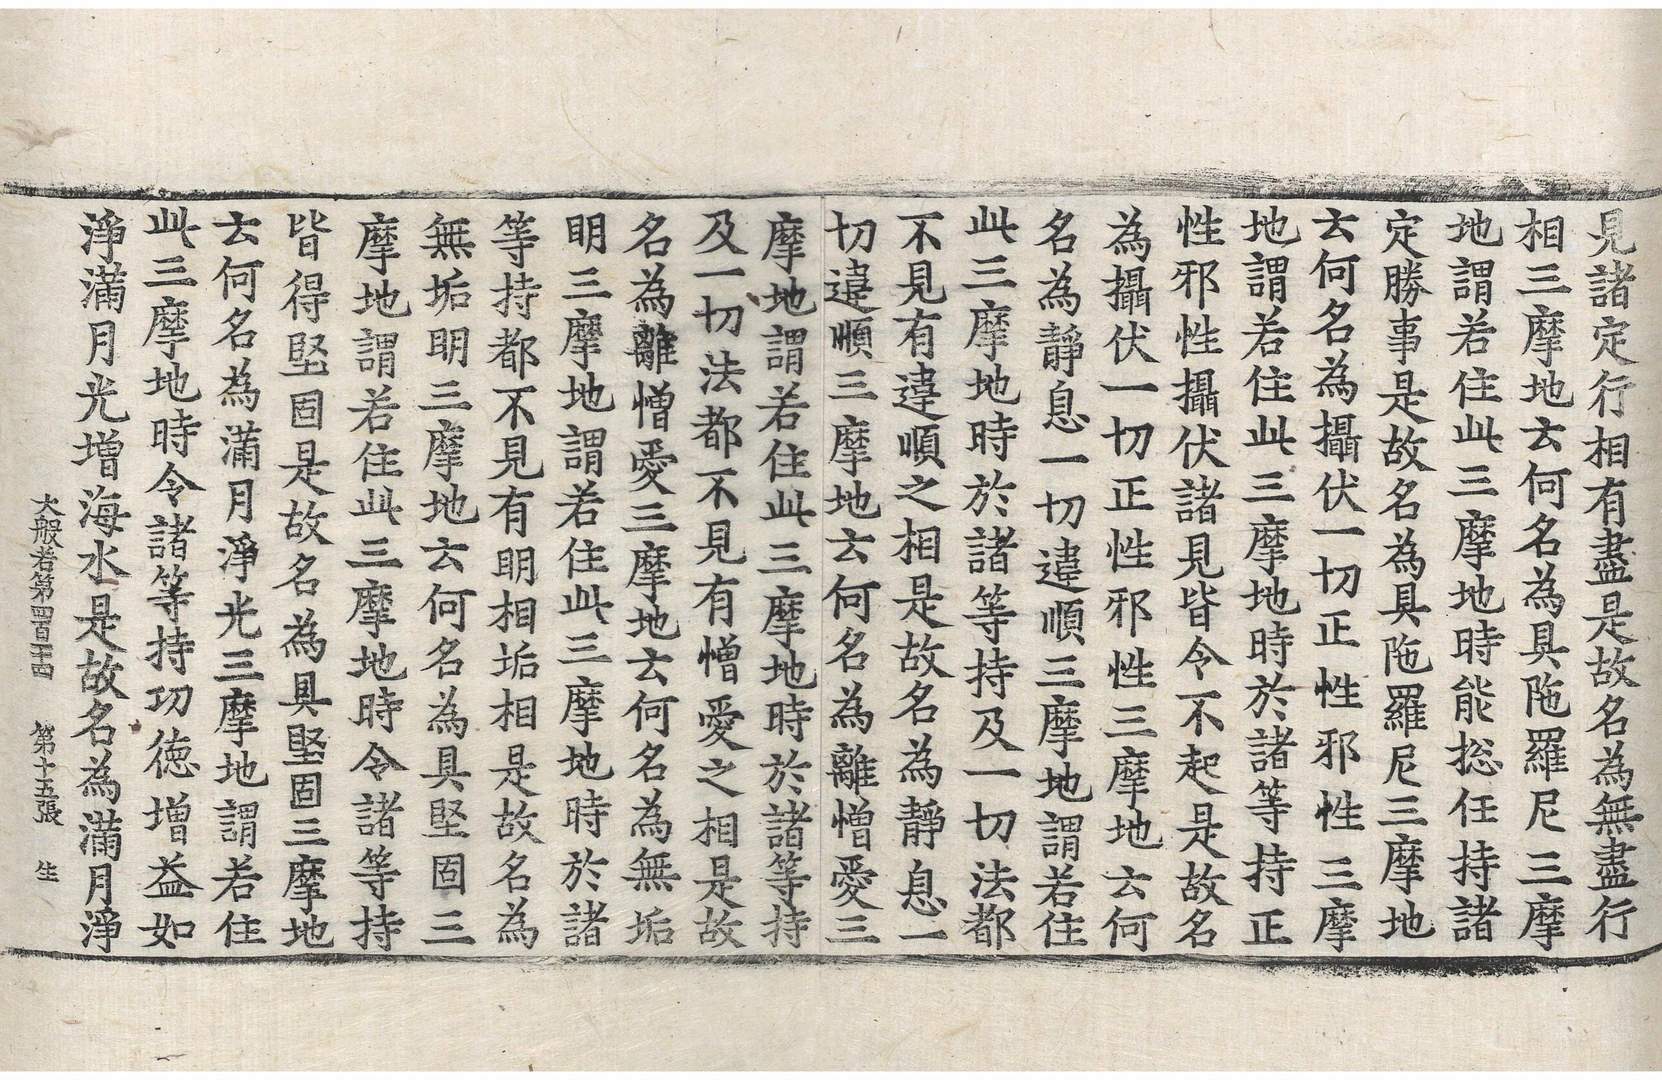 見諸定行相有盡是故名為無盡行
相三摩地云何名為具陁羅尼三摩
地謂若住此三摩地時能捴任持諸
定勝事是故名為具陁羅尼三摩地
云何名為攝伏一切正性邪性三摩
地謂若住此三摩地時於諸等持正
性邪性攝伏諸見皆令不起是故名
為攝伏一切正性邪性三摩地云何
名為靜息一切違順三摩地謂若住
此三摩地時於諸等持及一切法都
不見有違順之相是故名為靜息一
切違順三摩地云何名為離憎愛三
摩地謂若住此三摩地時於諸等持
及一切法都不見有憎愛之相是故
名為離憎愛三摩地云何名為無垢
明三摩地謂若住此三摩地時於諸
等持都不見有明相垢相是故名為
無垢明三摩地云何名為具堅固三
摩地謂若住此三摩地時令諸等持
皆得堅固是故名為具堅固三摩地
云何名為滿月淨光三摩地謂若住
此三摩地時令諸等持功德增益如
淨滿月光增海水是故名為滿月淨
大般若第四百十四 第十五張 生